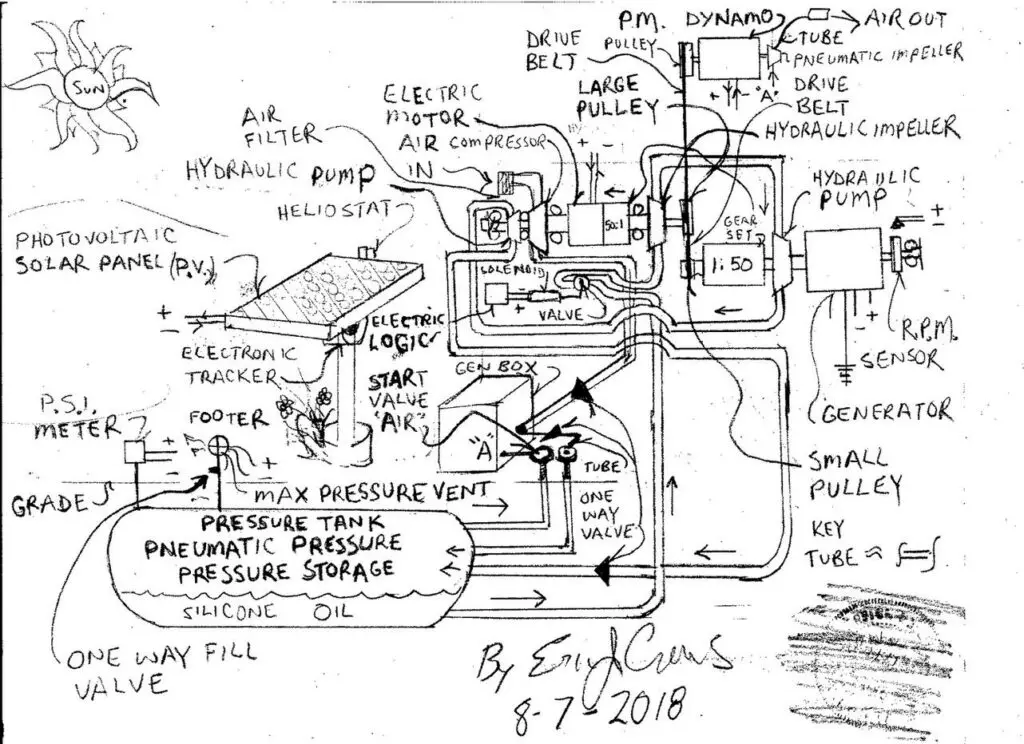 SUN
P.M. DYNAMO
AIR OUT
TUBE
PULLEY
PNEUMATIC IMPELLER
DRIVE
BELT
+ - "A"
DRIVE
BELT
LARGE
PULLEY
ELECTRIC
MOTOR
HYDRAULIC IMPELLER
AIR
FILTER
AIR COMPRESSOR
IN
+ -
HYDRAULIC PUMP
HYDRAULIC
PUMP
HELIOSTAT
50:1
GEAR
SET
1:50
+
-
PHOTOVOLTAIC
SOLAR PANEL (P.V.)
SOLENOID
+
-
VALVE
+
-
ELECTRIC
LOGIC
+
-
R.P.M.
SENSOR
ELECTRONIC
TRACKER
GEN BOX
START
VALVE
"AIR"
GENERATOR
P.S.I.
METER
FOOTER
"A"
+
-
+
-
TUBE
SMALL
PULLEY
GRADE
MAX PRESSURE VENT
ONE
WAY
VALVE
PRESSURE TANK
PNEUMATIC PRESSURE
PRESSURE STORAGE
KEY
TUBE ≈
SILICONE OIL
ONE WAY FILL
VALVE
By
8-7-2018